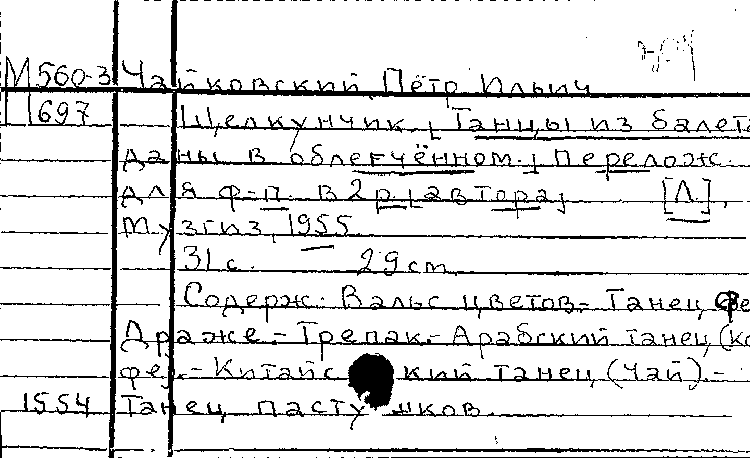 М560-3 Чайковский, Пётр Ильич
1697 Щелкунчик. [Танцы из балета
даны в облегчённом.] Перелож.
для ф-п. в 2 р. [автора] [Л],
Музгиз, 1955
31 с. 29 cm
Содерж.: Вальс цветов.- Танец фе
Драже.- Трепак.- Арабский танец (ко
фе).- Китайский танец (Чай).-
1554 Танец пастушков.